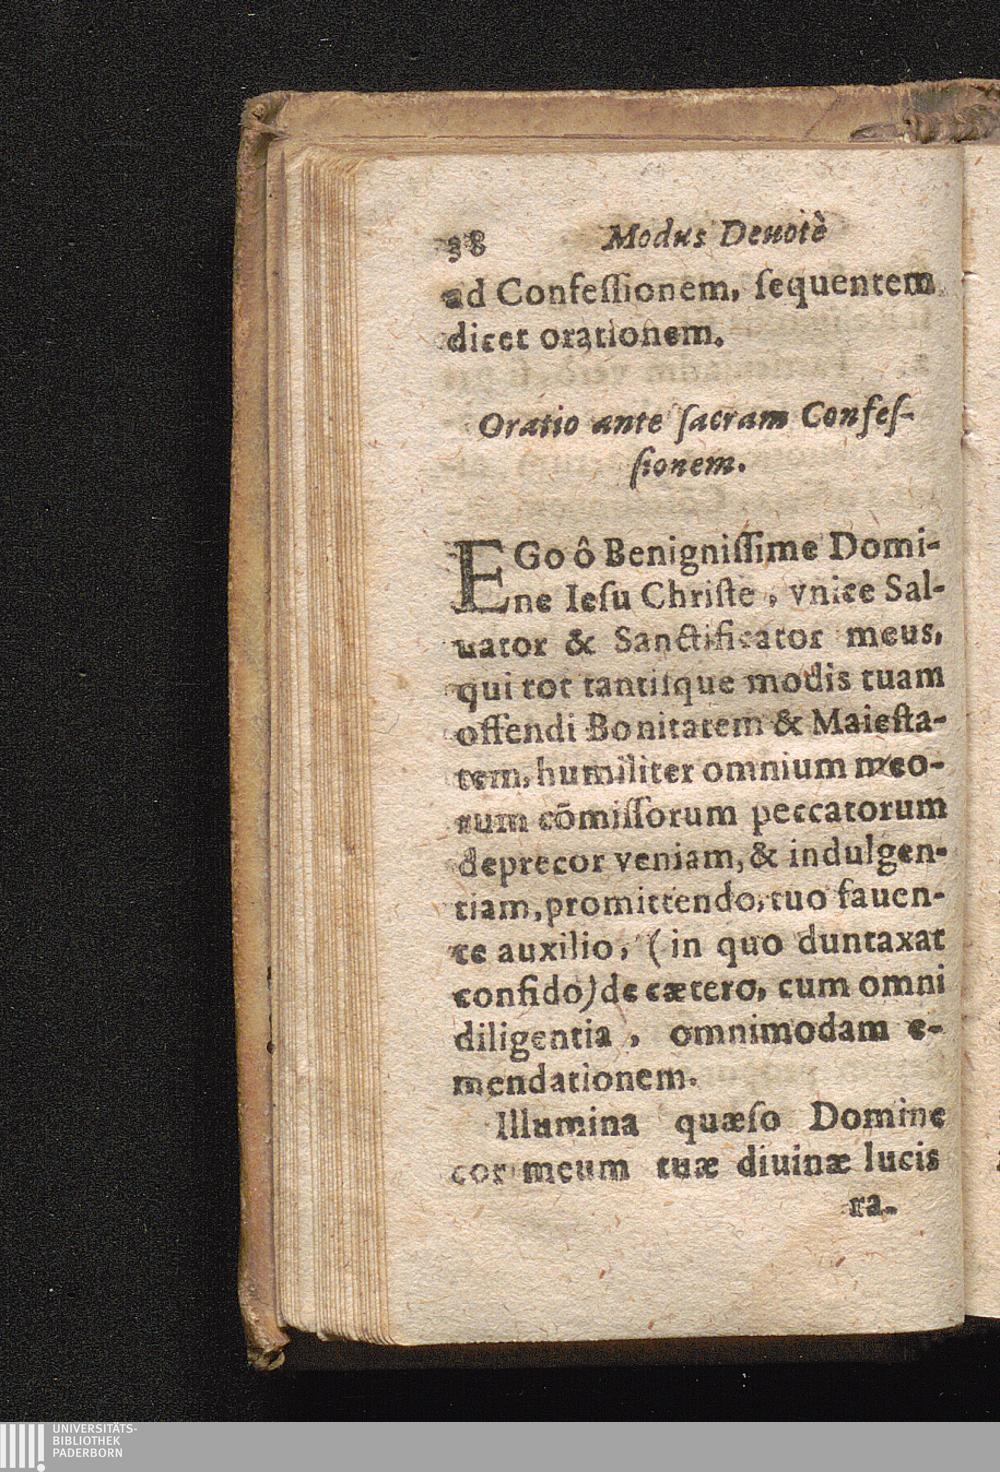 38 Modus Deuotè
ad Confeſſionem, ſequentem
dicet orationem.
Oratio ante ſacram Confeſ-
ſionem.
EGo ô Benigniſſime Domi-
ne Ieſu Chriſte, vnice Sal-
uator & Sanctificator meus,
qui tot tantiſque modis tuam
offendi Bonitatem & Maieſta-
tem, humiliter omnium meo-
rum cõmiſſorum peccatorum
deprecor veniam, & indulgen-
tiam, promittendo, tuo fauen-
te auxilio, (in quo duntaxat
confido) de cætero, cum omni
diligentia, omnimodam e-
mendationem.
Illumina quæſo Domine
cor meum tuæ diuinæ lucis
ra-
UNIVERSITÄTS-
BIBLIOTHEK
PADERBORN